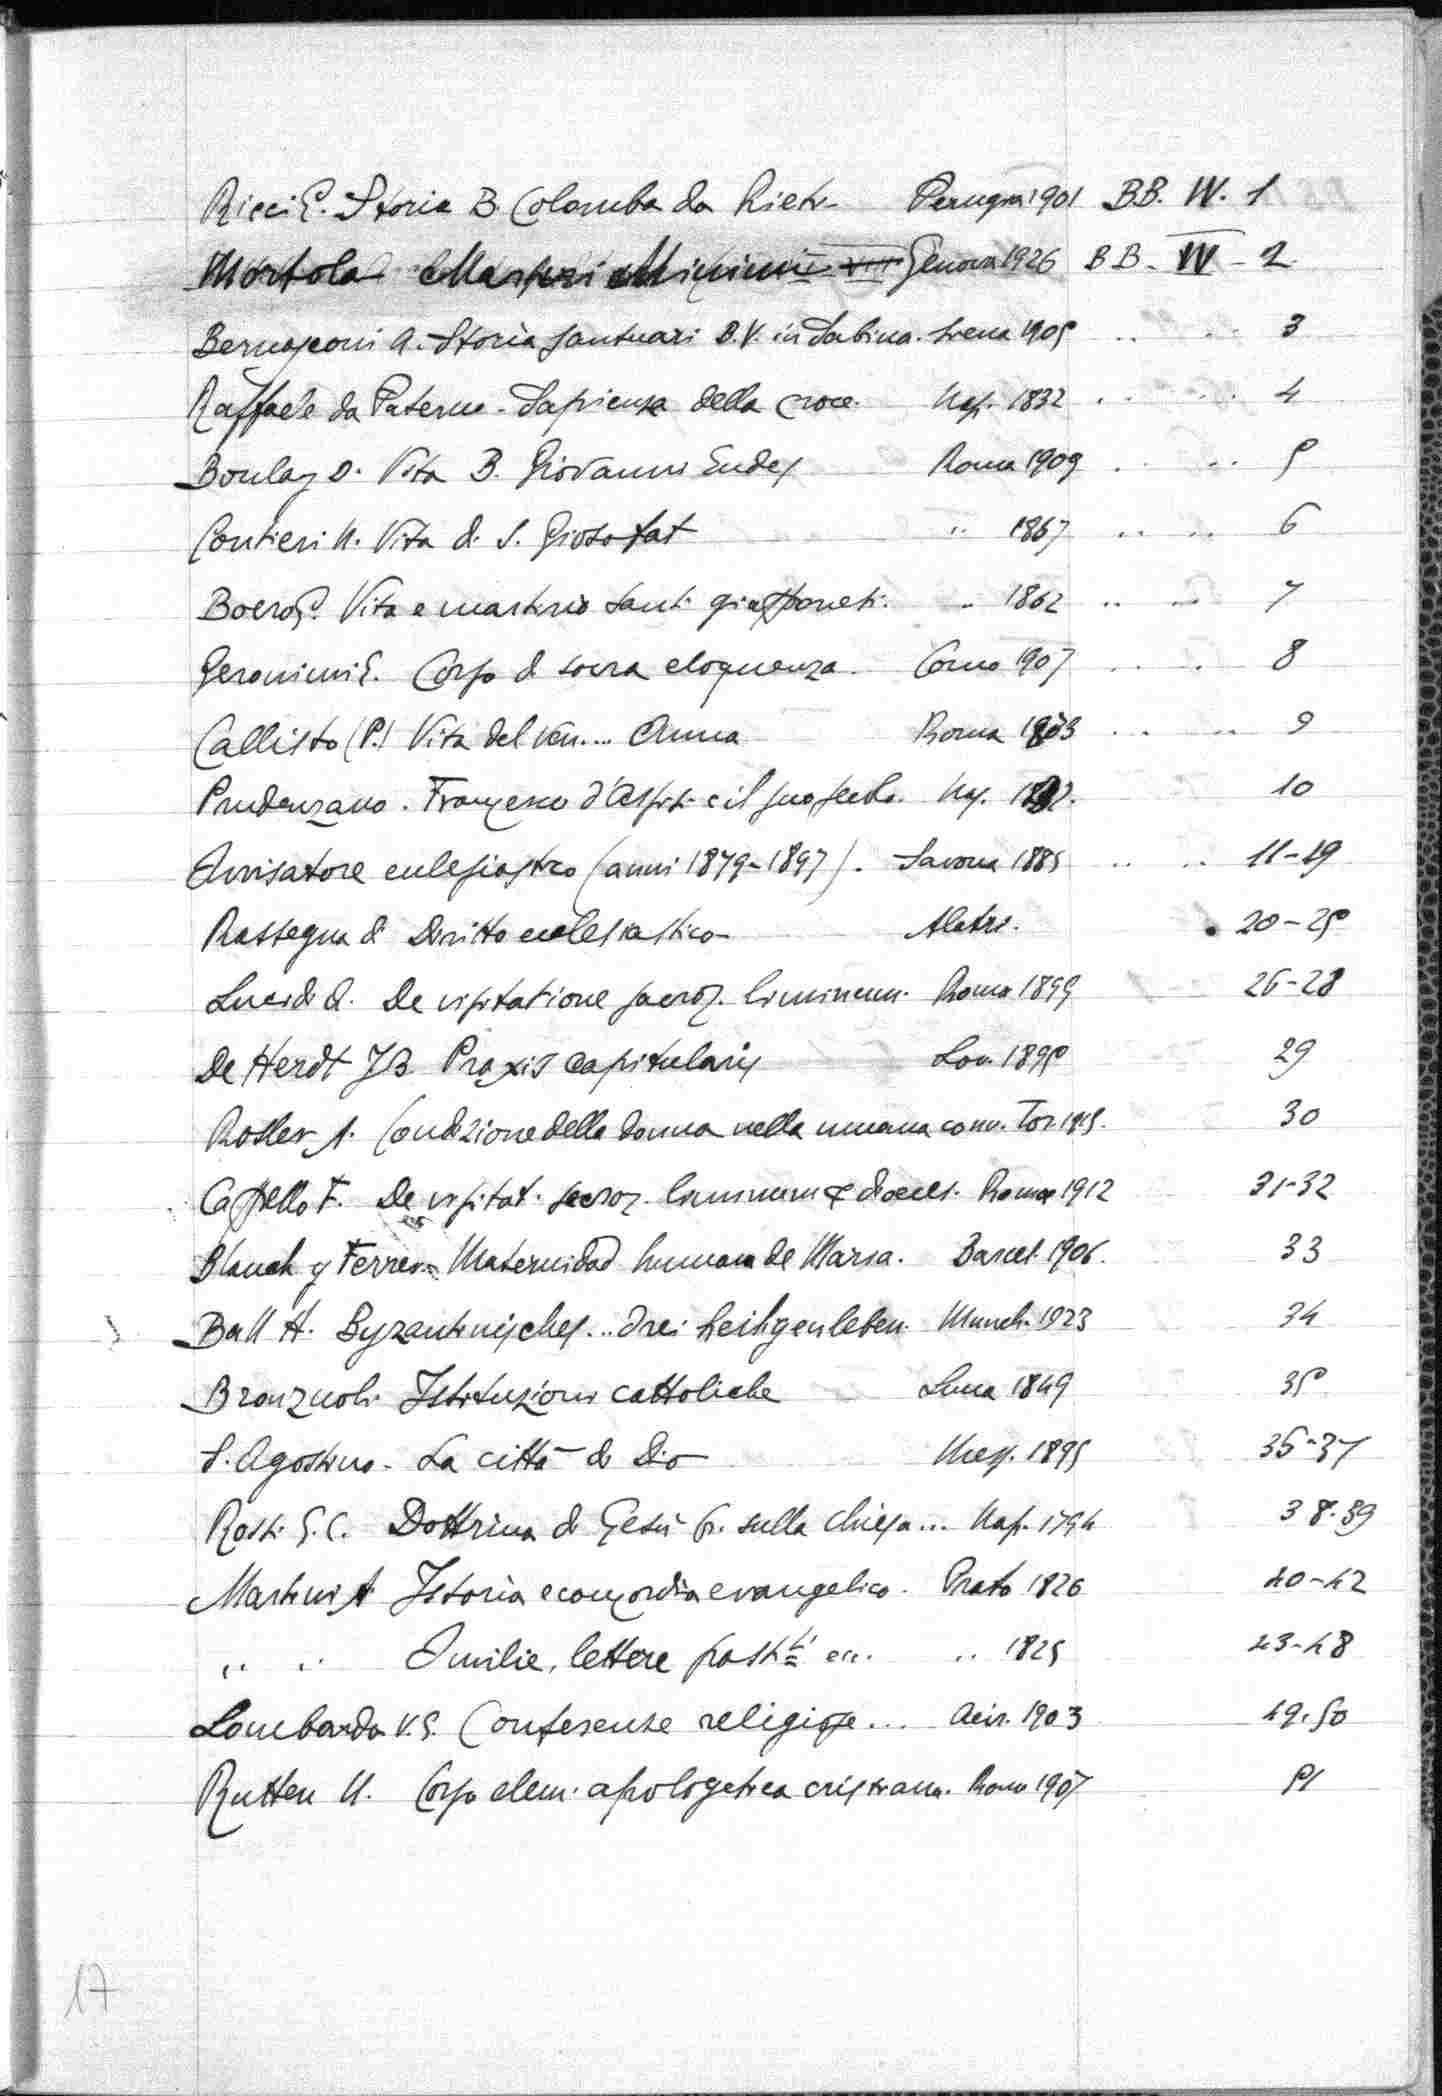 Ricci E. Storia B. Colomba da Rieti - Perugia 1901 BB. IV. 1
Mortola Genova 1926 BB - IV - 2.
Bernasconi A. Storia santuari B.V. in Sabina. Siena 1905 .. .. 3
Raffaele da Paterno - Sapienza della croce. Nap. 1832 .. .. 4
Boulay D. Vita B. Giovanni Eudes Roma 1909 .. .. 5
Contieri N. Vita di S. Giosafat .. 1867 .. .. 6
Boero G. Vita e martirio santi giapponesi. .. 1862 .. .. 7
Geronimi E. Corso di sacra eloquenza. Como 1907 .. . 8
Callisto (P.) Vita del ven.... Anna Roma .. .. 9
Prudenzano. Francesco d'Assisi e il suo secolo. Nap. 10
Avvisatore eclesiastico (anni 1879-1897). Savona 1885 .. .. 11-19
Rassegna di Diritto ecclesiastico Alatri. 20-25
Lucidi A. De visitatione sacror. liminum. Roma 1899 26-28
De Herdt J.B. Praxis capitularis Lov. 1895 29
Rosler A. Condizione della donna nella umana conv. Tor. 30
Cappello F. De visitat. sacror. liminum & dioeces. Roma 1912 31-32
Blanch y Ferrer. Maternidad humana de Maria. Barcel. 1906. 33
Ball H. Byzantinisches... drei heiligenleben. Munch. 1923 34
Bronzuoli Istituzioni cattoliche Lucca 1849 35
S. Agostino - La città di Dio Mess. 1895 36-37
Rosti G.C. Dottrina di Gesù Cr. sulla chiesa... Nap. 1794 38-39
Martini A Istoria e concordia evangelica. Prato 1826 40-42
,, ,, Omilie, lettere past.li ecc. .. 1825 43-48
Lombardo V.G. Conferenze religiose... Acir. 1903 49.50
Rutten U. Corso elem. apologetica cristiana. Roma 1907 51
17